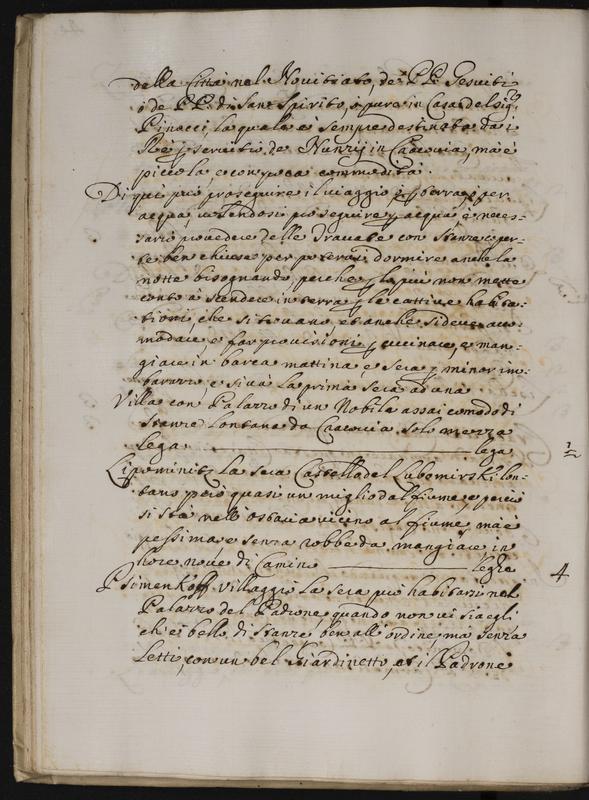 della Città nel Novitiato, de PP. Gesuiti
ò de PP. di Santo Spirito, ò pure in Casa del Sig.r
Pinocci, la quale è sempre destinata da i
Rè p servitio de Nunzij in Cracovia, ma è
piccola e con poca commodità.
Di qui può proseguire il viaggio ò p terra, ò per
acqua, volendosi proseguire p acqua è neces-
sario provedere delle Travate con Stanze coper-
te ben chiuse per potervi dormire anche la
notte bisognando, perche p lo più non mette
conto à scendere in terra p le cattive habita-
tioni, che si trovano, et anche si deve acco-
modare e far provisioni p cucinare, e man-
giare in barca mattina e sera p minor im-
barazzo e si và la prima sera ad una
Villa con Palazzo di un Nobile assai comodo di
Stanze lontana da Cracovia solo mezza
lega lega ½
Lipominitz la sera Castello del Lubomirski lon-
tano però quasi un miglio dal fiume, e perciò
si stà nell' ostaria vicino al fiume, ma è
pessima e senza robbe da mangiare in
hore nove di Camino leghe 4
Psimenkoff villaggio la sera può habitarsi nel
Palazzo del Padrone, quando non vi sia egli
ch' è bello di Stanze ben all' ordine ma senza
Letti, con un bel Giardinetto, et il Padrone